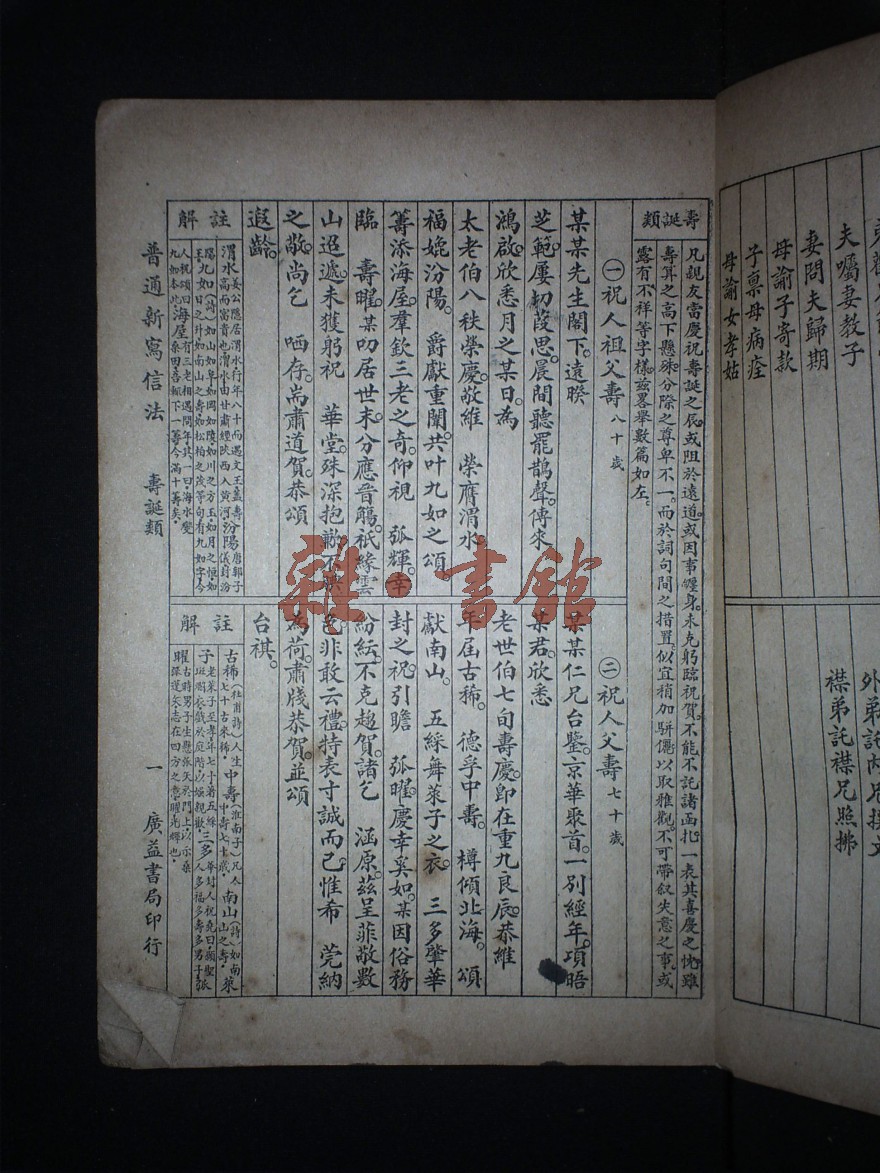 夫囑妻教子
妻問夫歸期
母諭子寄款
子稟母病痊
母諭女孝姑
襟弟託襟兄照拂
壽誕類
凡親友當慶祝壽誕之辰。或阻於遠道。或因事纏身。未克躬臨祝賀。不能不託諸函扎。一表其喜慶之忱。雖
壽算之高下懸殊。分際之尊卑不一。而於詞句間之措置。似宜稍加駢儷。以取雅觀。不可帶叙失意之事。或
露有不祥等字樣。茲畧舉數篇如左。
㊀祝人祖父壽 八十歲
某某先生閣下。遠睽
芝範。屢切葭思。晨間聽罷鵲聲。傳來
鴻啟。欣悉月之某日。為
太老伯八秩榮慶。敬維 榮膺渭水。
福媲汾陽。 爵獻重闈。共叶九如之頌
籌添海屋。羣欽三老之奇。仰視 弧輝。幸
臨 壽曜。某叨居世末。分應晉觴。祇緣雲
山迢遞。未獲躬祝 華堂。殊深抱歉。不
之敬。尚乞 哂存。耑肅道賀。恭頌
遐齡。
註解
渭水 姜公隱居渭水行年八十而遇文王蓋壽
高而富貴也渭水由甘肅經陝西入黃河 汾陽 唐郭子儀封汾
陽王 九如 (詩)如山如阜如岡如陵如川之方至如月之恒如
日之升如南山之壽如松柏之茂等句有九如字今
人祝頌曰九如本此 海屋 有三老相遇問年其一曰海水變
桑田吾輒下一籌今滿十籌矣。
㊁祝人父壽 七十歲
某某仁兄台鑒。京華聚首。一別經年。項晤
某君。欣悉
老世伯七旬壽慶。卽在重九良辰。恭維
年屆古稀。 德孚中壽。 樽傾北海。 頌
獻南山。 五綵舞萊子之衣。 三多肇華
封之祝。引瞻 弧曜。慶幸奚如。某因俗務
紛紜。不克趨賀。諸乞 涵原。茲呈菲敬數
色。非敢云禮。特表寸誠而已。惟希 莞納
為荷。肅牋恭賀。並頌
台祺。
註解
古稀 (杜甫詩)人生七十古來稀。 中壽 (淮南子)凡人中壽七十歲 南山 (詩)如南山之壽。 萊
子 老萊子至孝年七十着五綵斑斕衣戲於庭階以娛親歡。 三多 華封人祝堯曰願聖人多福多壽多男子 弧
曜 古時男子生懸張矢於門上以示桑蓬矢志在四方之意曜光輝也。
普通新寫信法 壽誕類 一 廣益書局印行
雜·書館